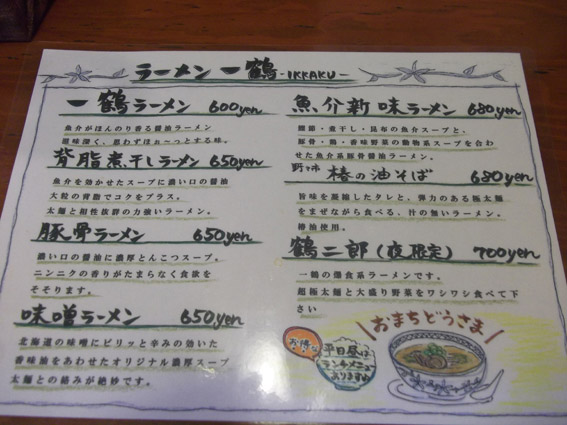 ラーメン 一鶴 -IKKAKU-
一鶴ラーメン 600yen
魚介がほんのり香る醤油ラーメン
滋味深く、思わずほぉ~っとする味。
背脂煮干しラーメン 650yen
魚介を効かせたスープに濃い口の醤油
大粒の背脂でコクをプラス。
太麺と相性抜群の力強いラーメン。
豚骨ラーメン 650yen
濃い口の醤油に濃厚とんこつスープ。
ニンニクの香りがたまらなく食欲を
そそります。
味噌ラーメン 650yen
北海道の味噌にピリッと辛みの効いた
香味油をあわせたオリジナル濃厚スープ
太麺との絡みが絶妙です。
魚介新味ラーメン 680yen
鰹節・煮干し・昆布の魚介スープと、
豚骨・鶏・香味野菜の動物系スープを合わ
せた魚介系豚骨醤油ラーメン。
野々市 椿の油そば 680yen
旨味を凝縮したタレと、弾力のある極太麺
をまぜながら食べる、汁の無いラーメン。
椿油使用。
鶴二郎(夜限定) 700yen
一鶴の爆食系ラーメンです。
超極太麺と大盛り野菜をワシワシ食べて下
さい
おまちどうさま
お得な
平日昼は
ランチメニュー
あります